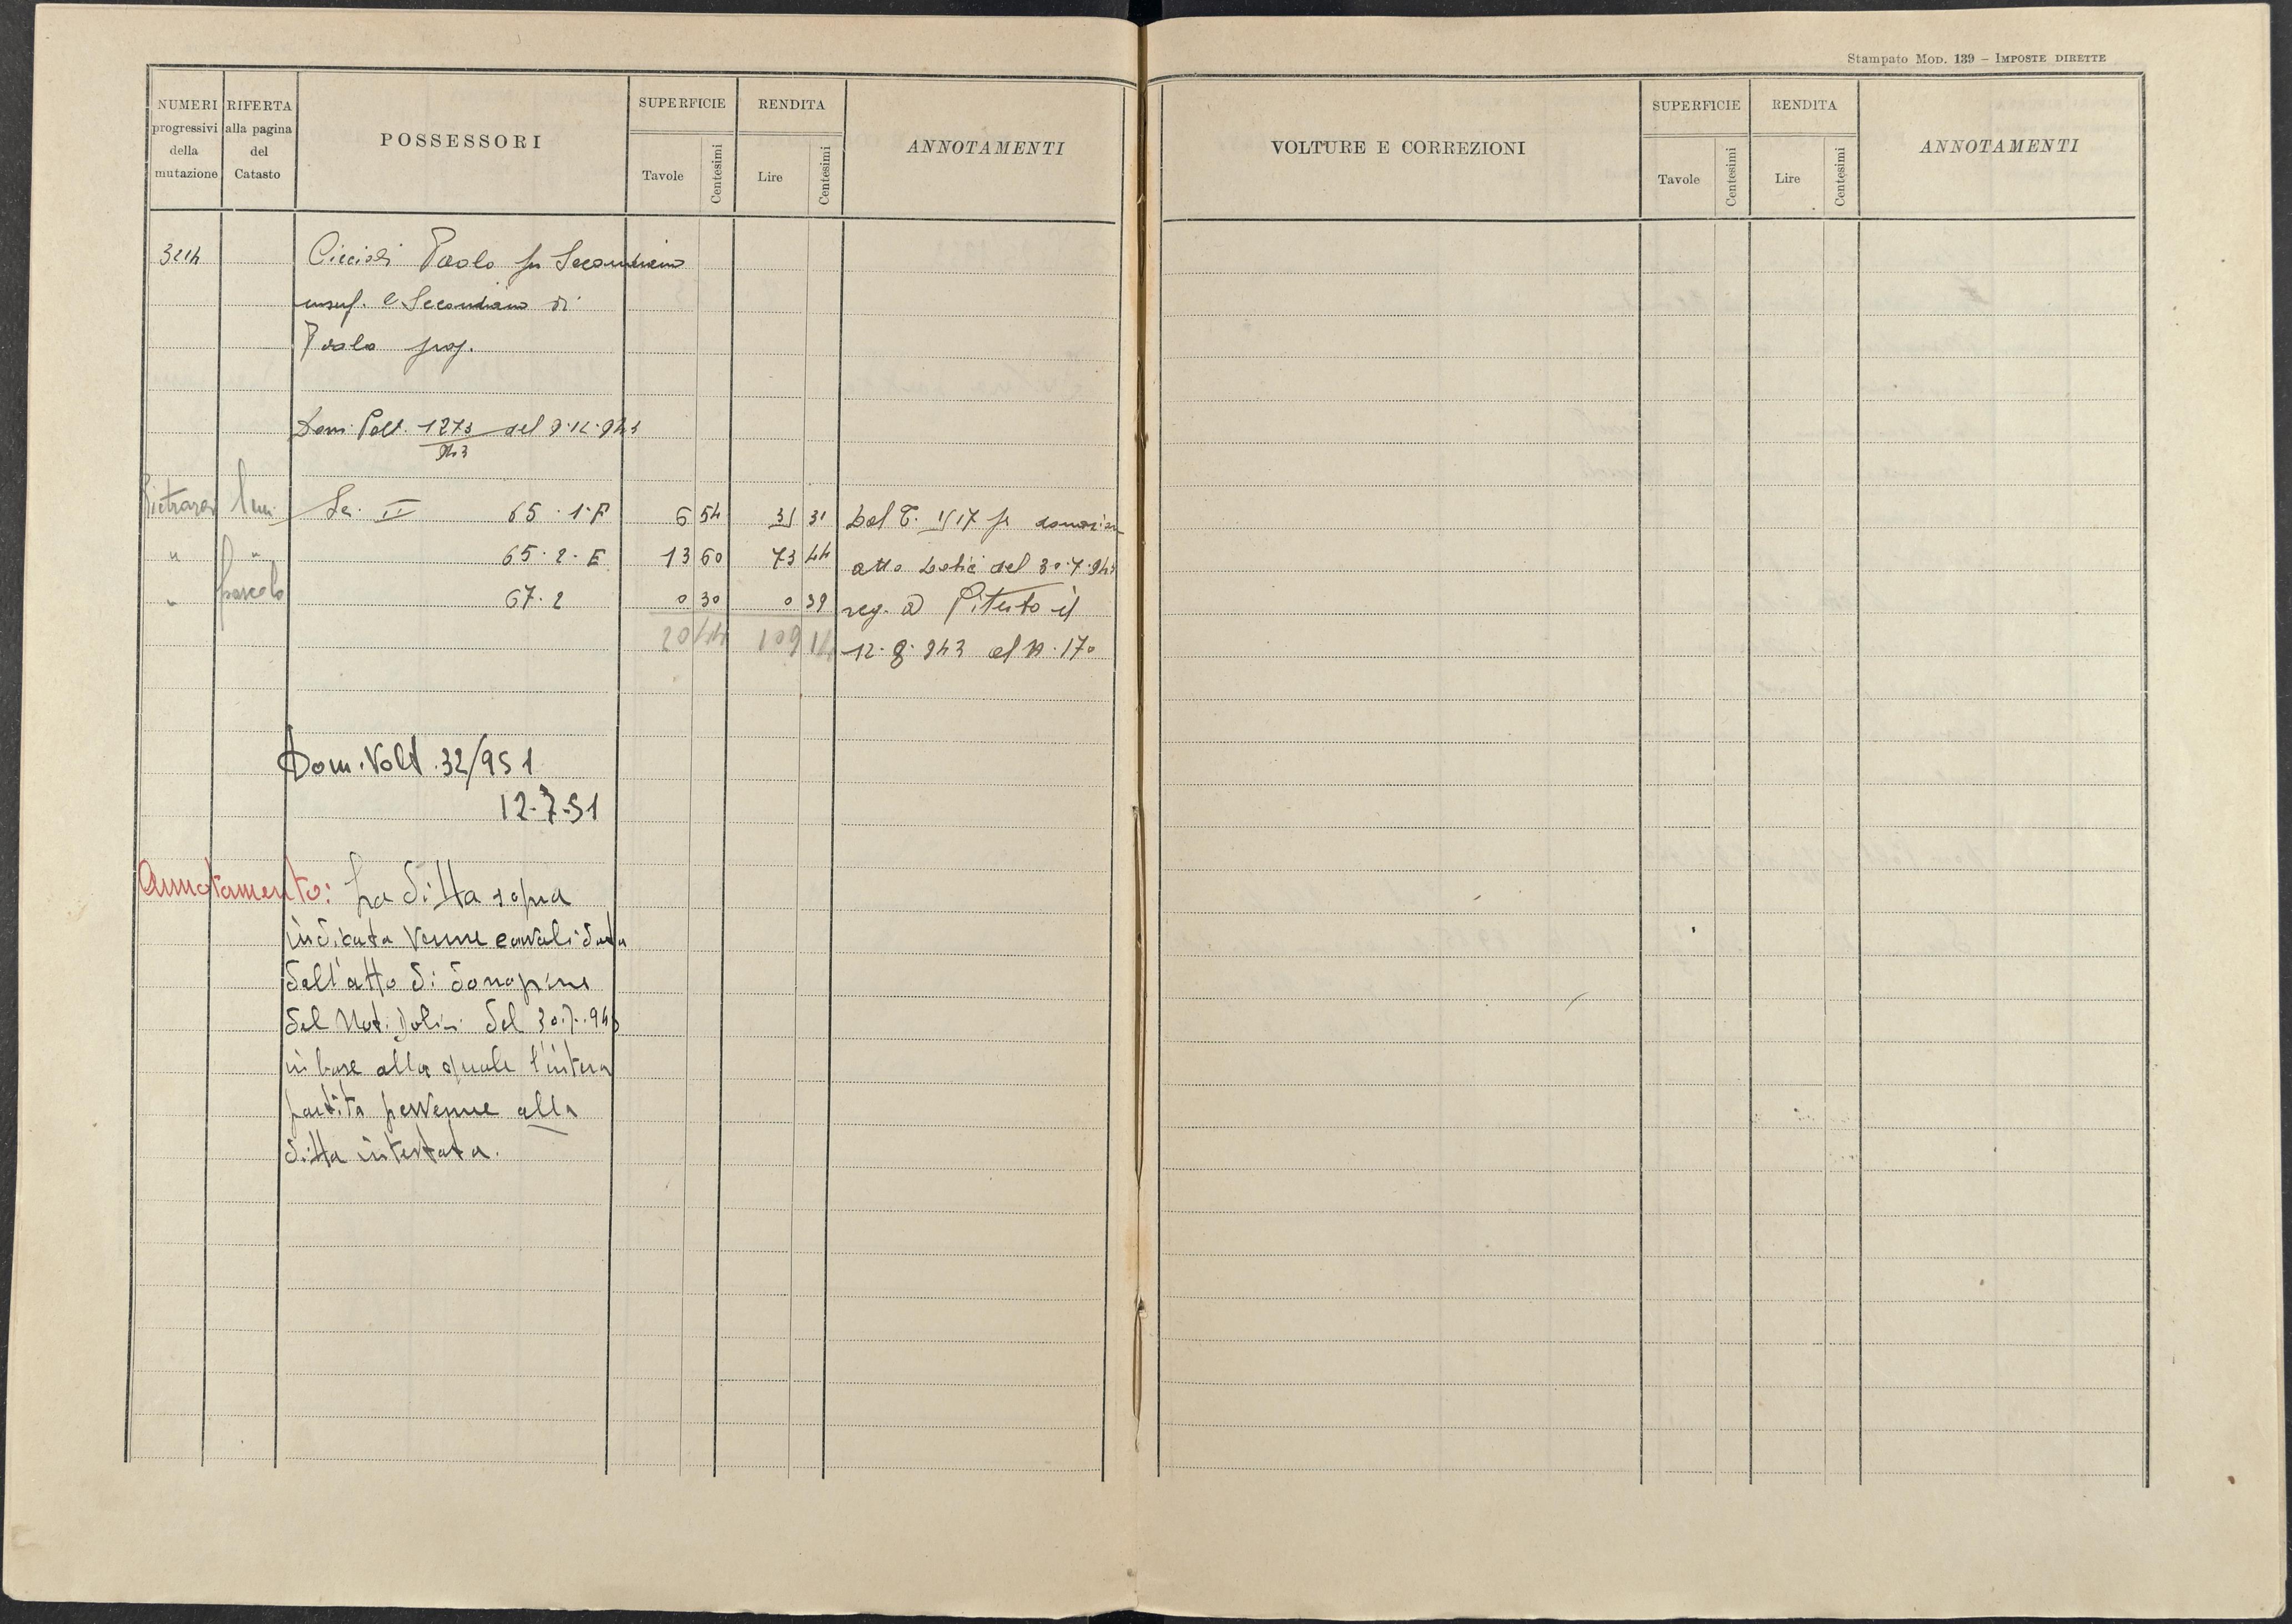 Stampato Mod. 139 – IMPOSTE DIRETTE
NUMERI progressivi della mutazione
RIFERTA alla pagina del Catasto
POSSESSORI
SUPERFICIE
Tavole
Centesimi
RENDITA
Lire
Centesimi
ANNOTAMENTI
VOLTURE E CORREZIONI
SUPERFICIE
Tavole
Centesimi
RENDITA
Lire
Centesimi
ANNOTAMENTI
3214 Paolo fu Secondiano
usuf. e Secondiano di
Paolo prop.
Dom. Volt. 1273 del 9.12.943
943
Sez. II 65.1.F 6 54 35 31 Dal T. per donazion
" " 65.2.E 13 60 73 44 atto del 30.7.943
" pascolo 67.2 0 30 0 39 reg. a il
20 44 109 14 12.8.943 al N. 170
Dom. Volt. 32/951
12-7-51
Annotamento: La Ditta sopra
indicata venne convalidata
dall'atto di donazione
del Not. del 30.7.943
in base alla quale l'intera
partita pervenne alla
ditta intestata.